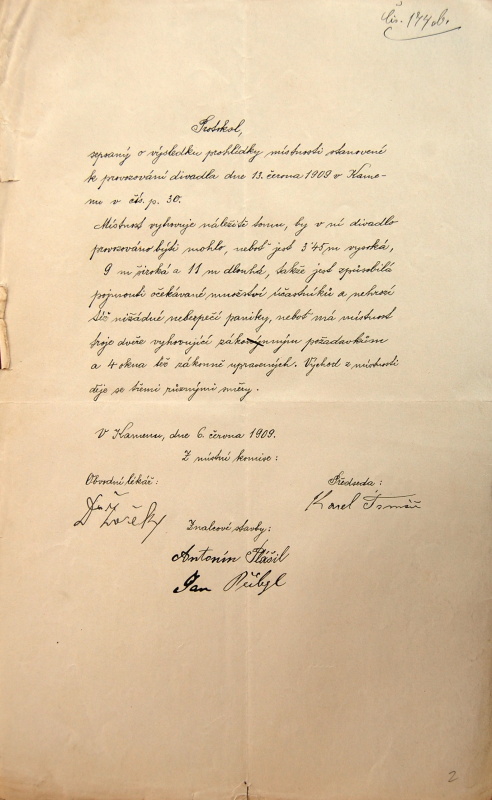 Čís. 174 ob.
Protokol,
sepsaný o výsledku prohlídky místnosti stanovené
ku provozování divadla dne 13. června 1909 v Kame-
nu v čís. p. 30.
Místnost vyhovuje náležitě tomu, by v ní divadlo
provozováno býti mohlo, neboť jest 3˙45 m vysoká,
9 m široká a 11 m dlouhá, takže jest způsobilá
pojmouti očekávané množství účastníků a nehrozí
též nižádné nebezpečí paniky, neboť má místnost
troje dvéře vyhovující zákonným požadavkům
a 4 okna též zákonně upravených. Východ z místnosti
děje se třemi různými směry.
V Kamenu, dne 6. června 1909.
Z místní komise:
Obvodní lékař:
Předseda:
Dr
Karel
Znalcové stavby:
Antonín Plášil
Jan Přibyl
2